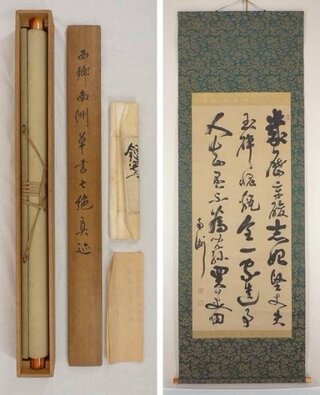 西郷南洲草書七絶真迹
幾歴辛酸志始堅丈夫
玉砕愧甎全一家遺事
人知否不為児孫買美田
南洲